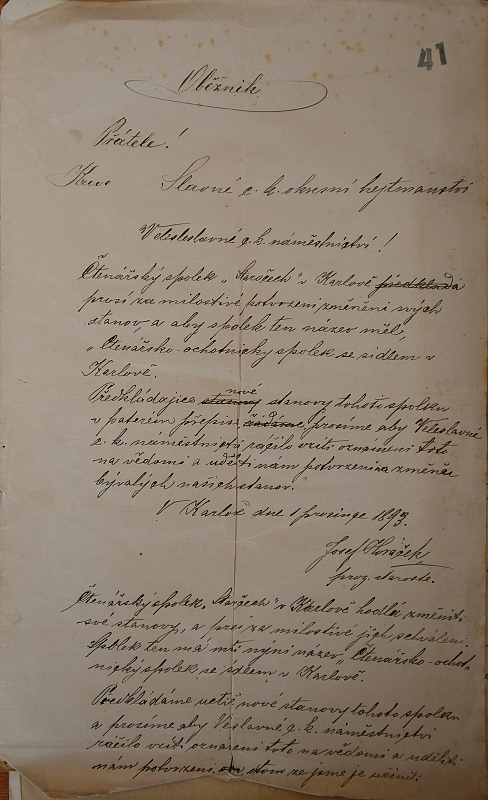 41
Oběžník.
Přátele!
Slavné c. k. okresní hejtmanství
Veleslavné c. k. náměstnictví!
Čtenářský spolek „Staročech" v Karlově předkládá
prosí za milostivé potvrzení změnění svých
stanov, a aby spolek ten název měl,
„Čtenářsko-ochotnický spolek se sídlem v
Karlově.
Předkládajíce stanovy nové stanovy tohoto spolku
v paterém přepise žádáme prosíme aby Veleslavné
c. k. náměstnictví ráčilo vzíti oznámení toto
na vědomí a uděliti nám potvrzení za změněn
bývalých našich stanov.
V Karlově dne 1 prosince 1893.
Josef Horáček
proz. starosta.
Čtenářský spolek „Staročech" v Karlově hodlá změniti
své stanovy, a prosí za milostivé jich schválení.
Spolek ten má míti nyní název „Čtenářsko-ochot-
nický spolek se sídlem v Karlově.
Předkládáme nové stanovy tohoto spolku
a prosíme aby Veslavné c. k. náměstnictví
ráčilo vzíti oznámení toto na vědomí a uděliti
nám potvrzení, o tom že jsme je učinili